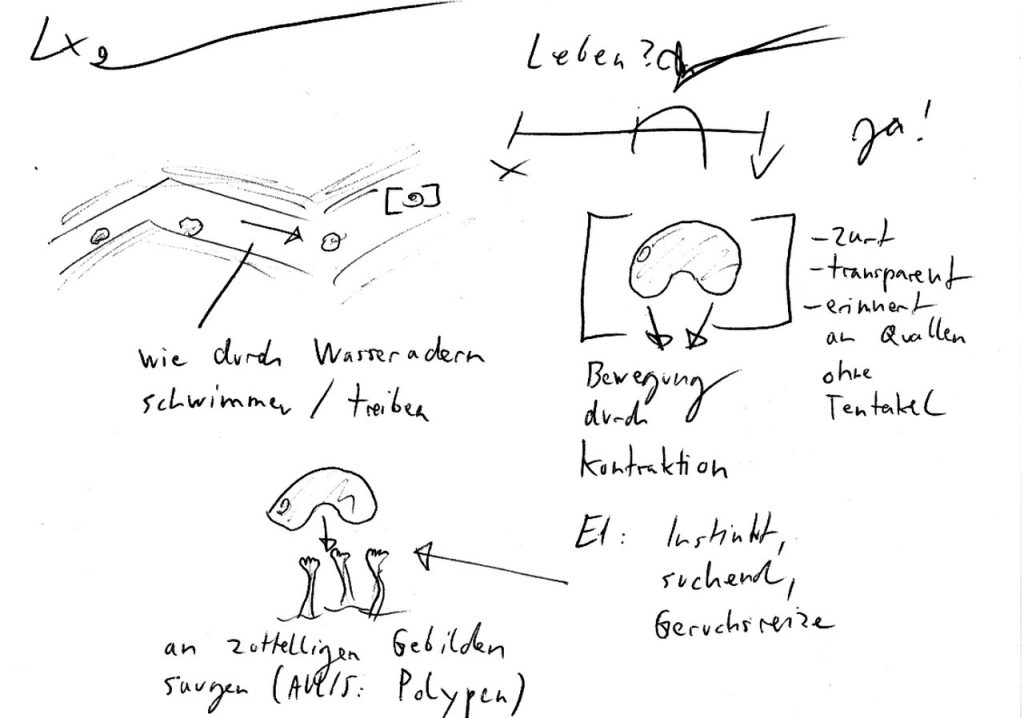 Leben?
ja!
wie durch Wasseradern
schwimmen / treiben
- zart
- transparent
- erinnert
an Quallen
ohne
Tentakel
Bewegung
durch
Kontraktion
EI: Instinkt,
suchend,
Geruchsreize
an zotteligen Gebilden
saugen (AUL/S: Polypen)